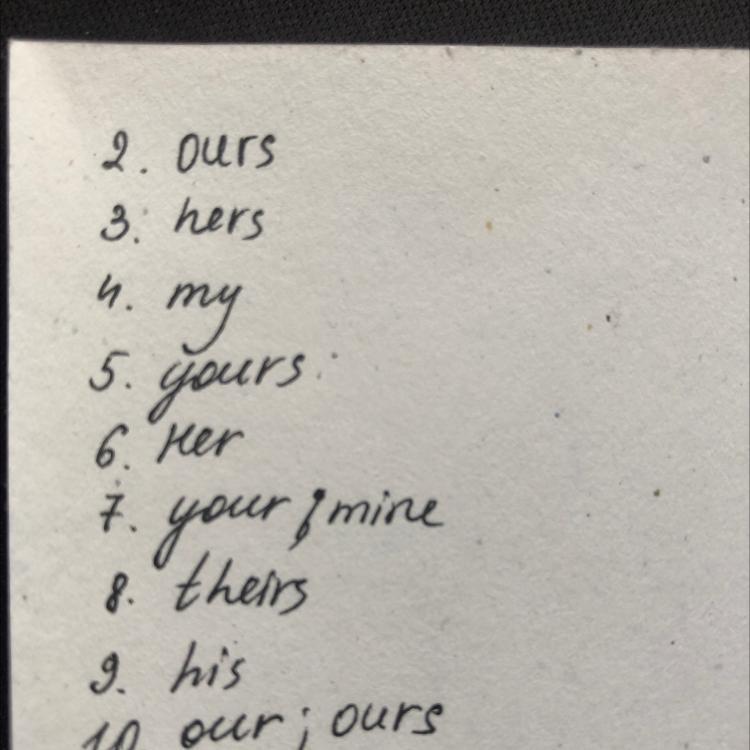 2. ours
3. hers
4. my
5. yours
6. Her
7. your ; mine
8. theirs
9. his
10 our ; ours